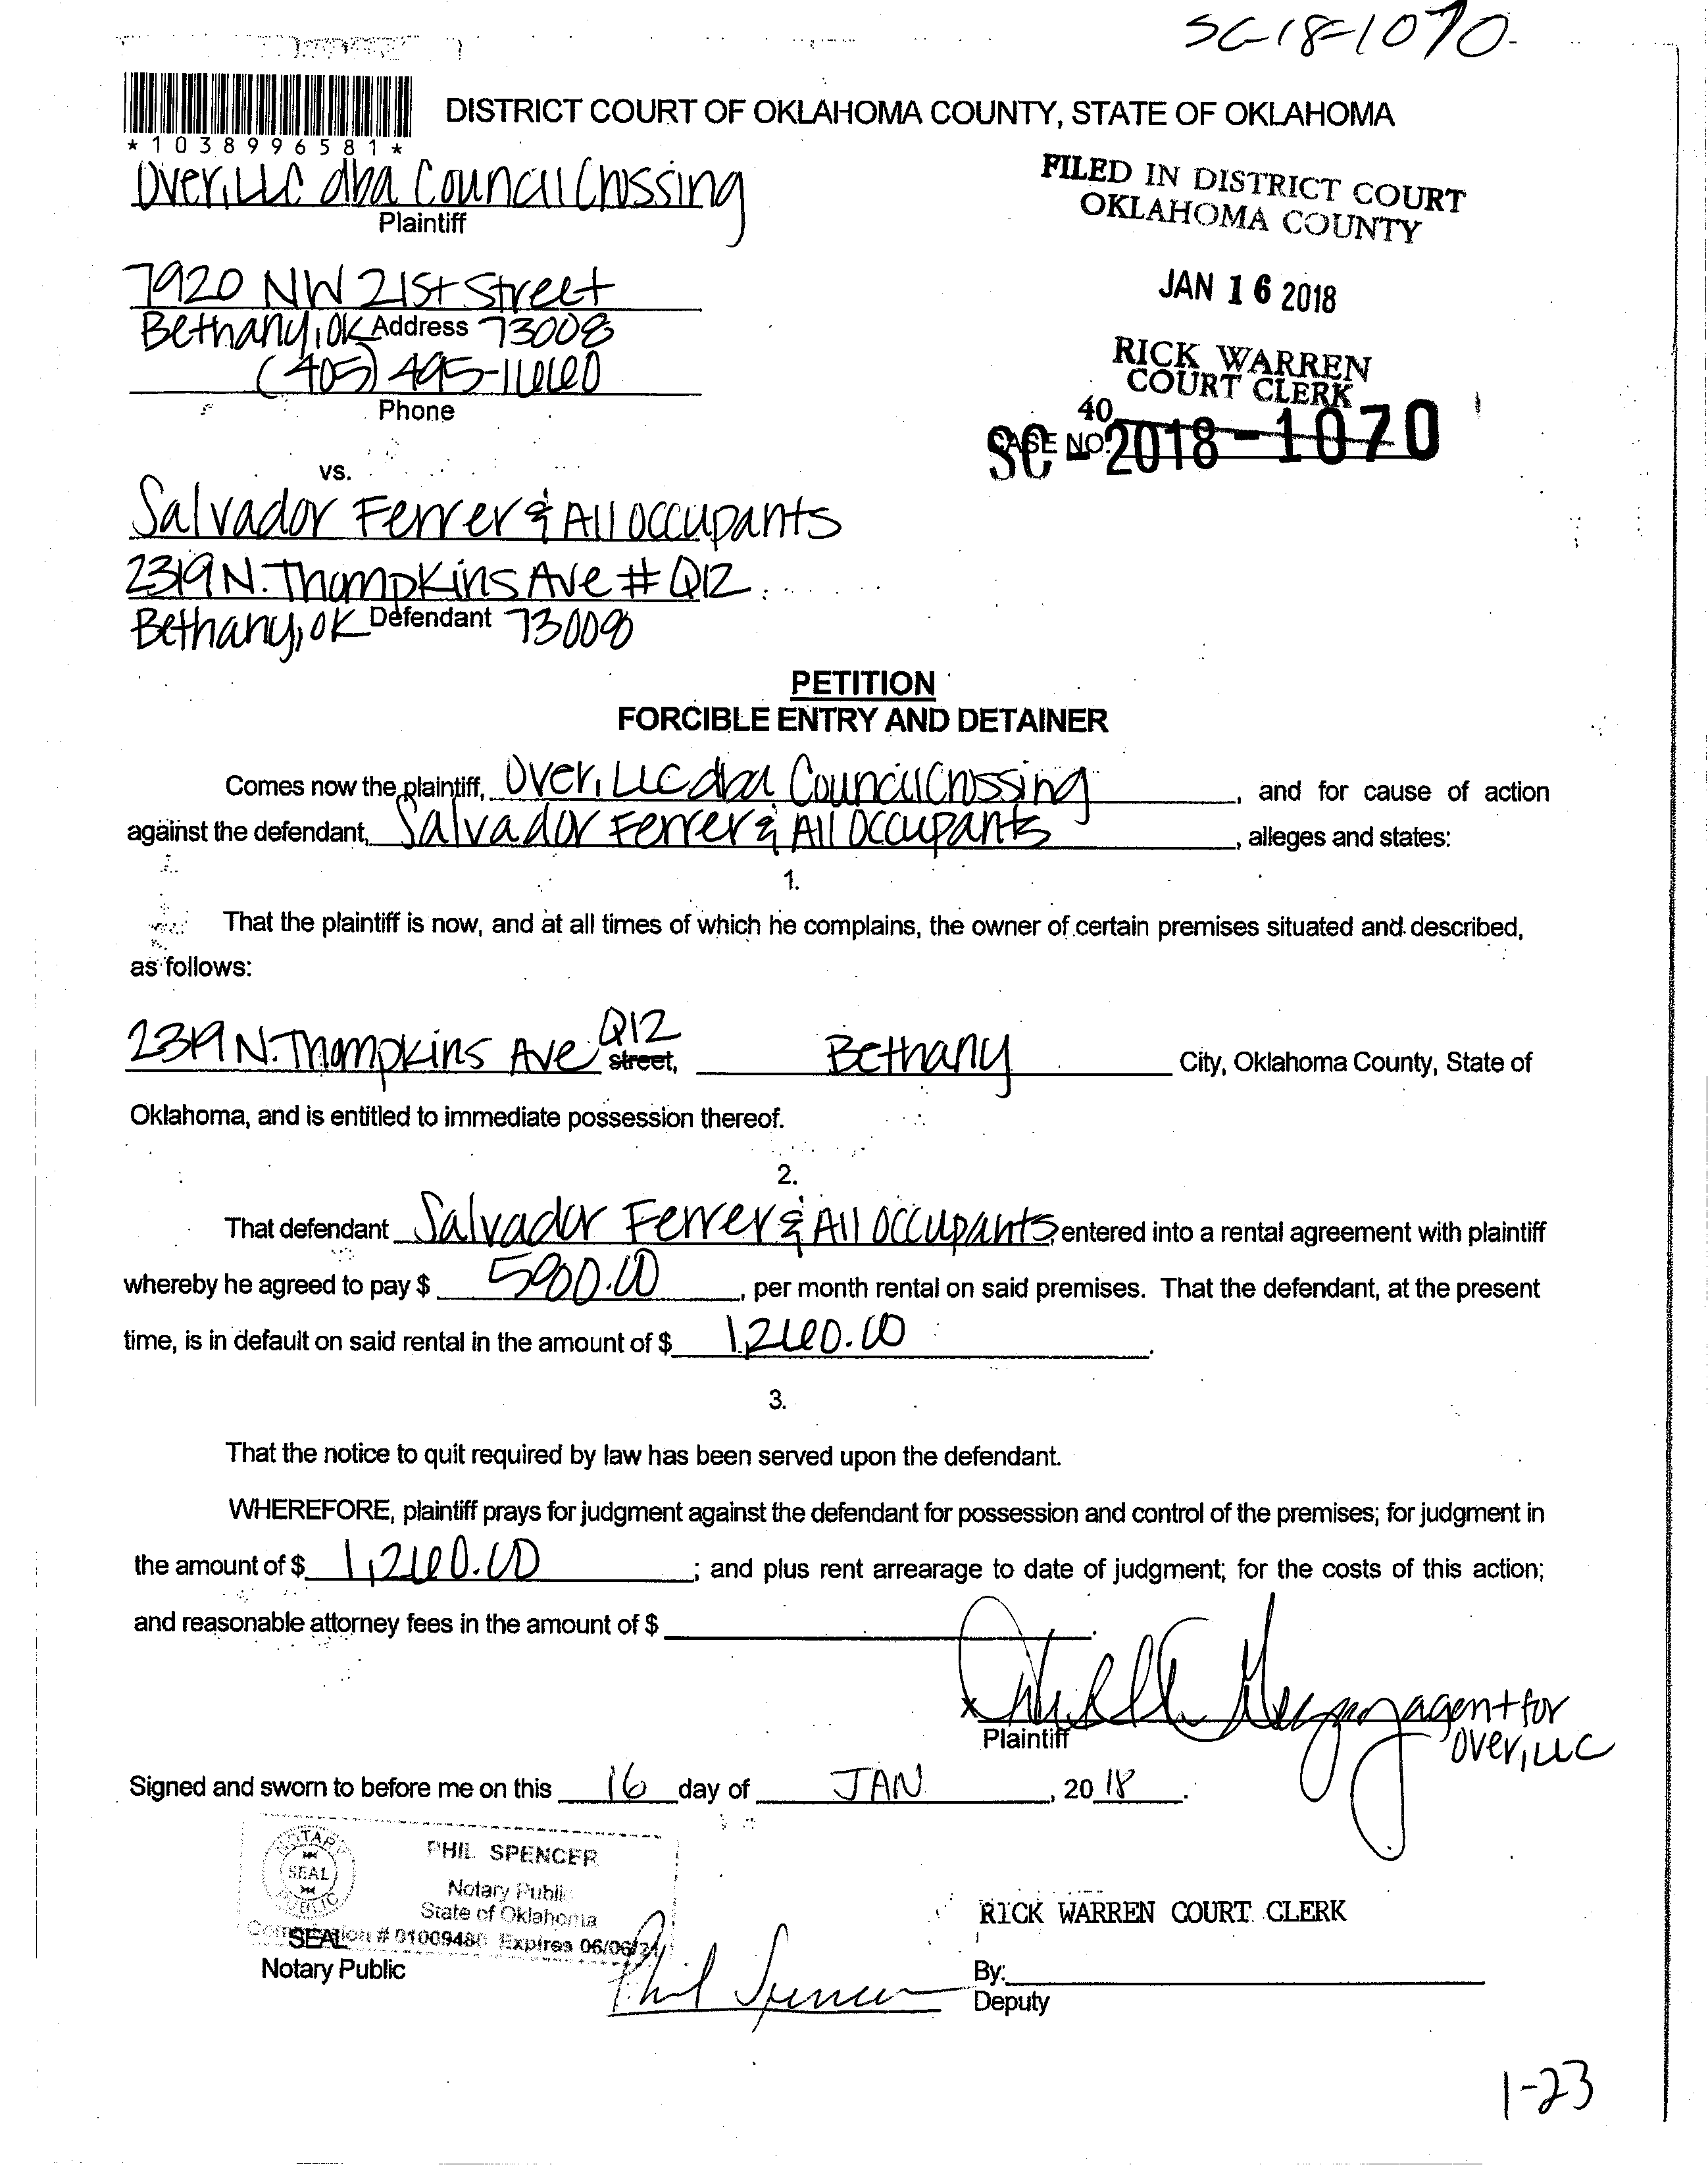 SC-18-1070
*1038996581*
DISTRICT COURT OF OKLAHOMA COUNTY, STATE OF OKLAHOMA
Over, LLC dba Council Crossing
Plaintiff
FILED IN DISTRICT COURT
OKLAHOMA COUNTY
JAN 16 2018
RICK WARREN
COURT CLERK
40
CASE NO.
SC-2018-1070
7920 NW 21st Street
Address
Bethany, OK 73008
(405) 495-1660
Phone
vs.
Salvador Ferrer & All occupants
2319 N. Thompkins Ave # Q12
Defendant
Bethany, OK 73008
PETITION
FORCIBLE ENTRY AND DETAINER
Comes now the plaintiff, Over, LLC dba Council Crossing, and for cause of action
against the defendant, Salvador Ferrer & All occupants, alleges and states:
1.
That the plaintiff is now, and at all times of which he complains, the owner of certain premises situated and described,
as follows:
2319 N. Thompkins Ave Q12 street, Bethany City, Oklahoma County, State of
Oklahoma, and is entitled to immediate possession thereof.
2.
That defendant Salvador Ferrer & All occupants entered into a rental agreement with plaintiff
whereby he agreed to pay $ , per month rental on said premises. That the defendant, at the present
time, is in default on said rental in the amount of $ 1260.00.
3.
That the notice to quit required by law has been served upon the defendant.
WHEREFORE, plaintiff prays for judgment against the defendant for possession and control of the premises; for judgment in
the amount of $ 1,260.00; and plus rent arrearage to date of judgment; for the costs of this action;
and reasonable attorney fees in the amount of $
x agent for
Over, LLC
Plaintiff
Signed and sworn to before me on this 16 day of JAN, 2018.
NOTARY PUBLIC
SEAL
PHIL SPENCER
Notary Public
State of Oklahoma
Commission # 01009480 Expires 06/06/21
SEAL
Notary Public
Phil Spencer
RICK WARREN COURT CLERK
By:
Deputy
1-23